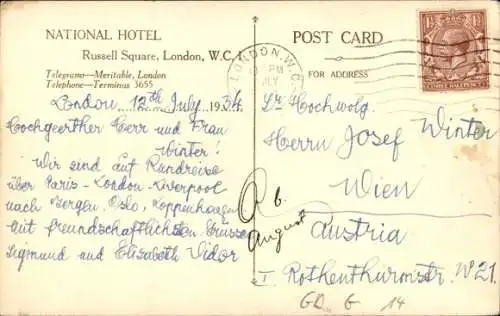 NATIONAL HOTEL
Russell Square, London, W.C.1
Telegrams—Meritable, London
Telephone—Terminus 5655
London 12th July 1934
Hochgeerther Herr und Frau
Winter!
Wir sind auf Rundreise
über Paris-London-Liverpool
nach Bergen, Oslo, Koppenhagen
Mit freundschaftlichsten Grüssen
Sigmund und Elisabeth Vidor
POST CARD
FOR ADDRESS
LONDON. W.C.
PM
JLY
THREE HALFPENCE
Sr Hochwolg.
Herrn Josef Winter
Wien
Austria
I Rothenthurmstr. W 21.
Ab.
August
G 14